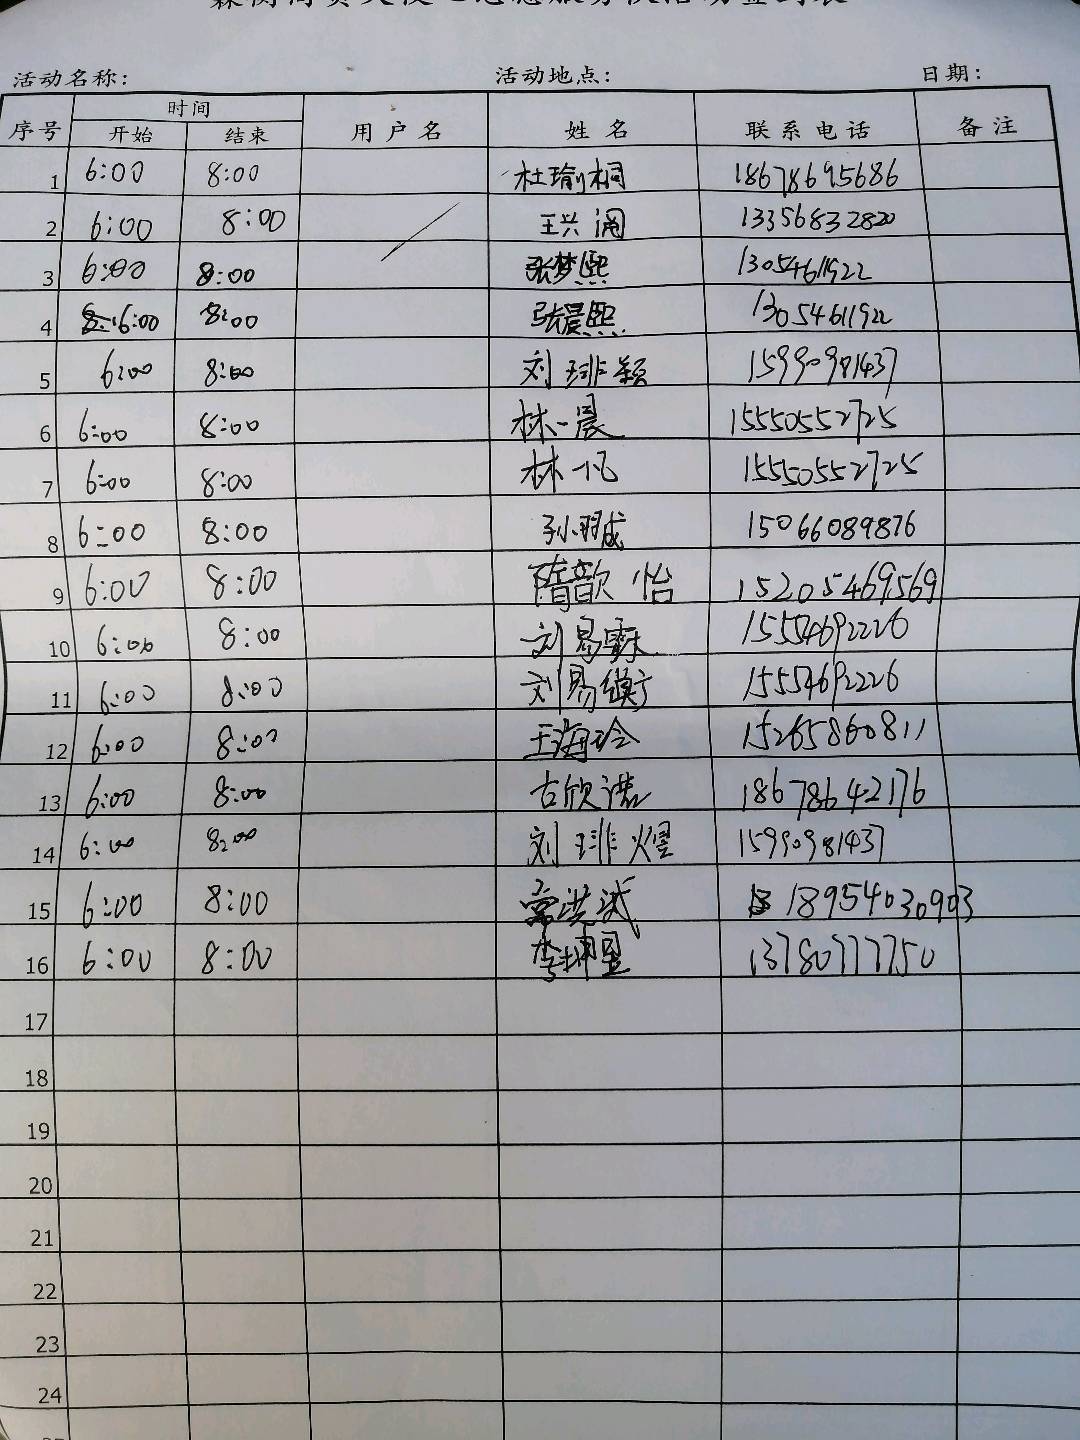 活动名称： 活动地点： 日期：
序号 时间 用户名 姓名 联系电话 备注
开始 结束
1 6:00 8:00 杜瑜桐 18678695686
2 6:00 8:00 王兴 13356832820
3 6:00 8:00 张梦熙 13054611922
4 6:00 8:00 张晨熙 13054611922
5 6:00 8:00 刘琲颖 15990981437
6 6:00 8:00 林一晨 15550552725
7 6:00 8:00 林一凡 15550552725
8 6:00 8:00 孙羽成 15066089876
9 6:00 8:00 隋歆怡 15205469569
10 6:00 8:00 刘易霖 15554692226
11 6:00 8:00 刘易 15554692226
12 6:00 8:00 王海玲 15265860811
13 6:00 8:00 古欣诺 18678642176
14 6:00 8:00 刘琲熠 15990981437
15 6:00 8:00 常洪斌 18954030903
16 6:00 8:00 李坤星 13780777750
17
18
19
20
21
22
23
24